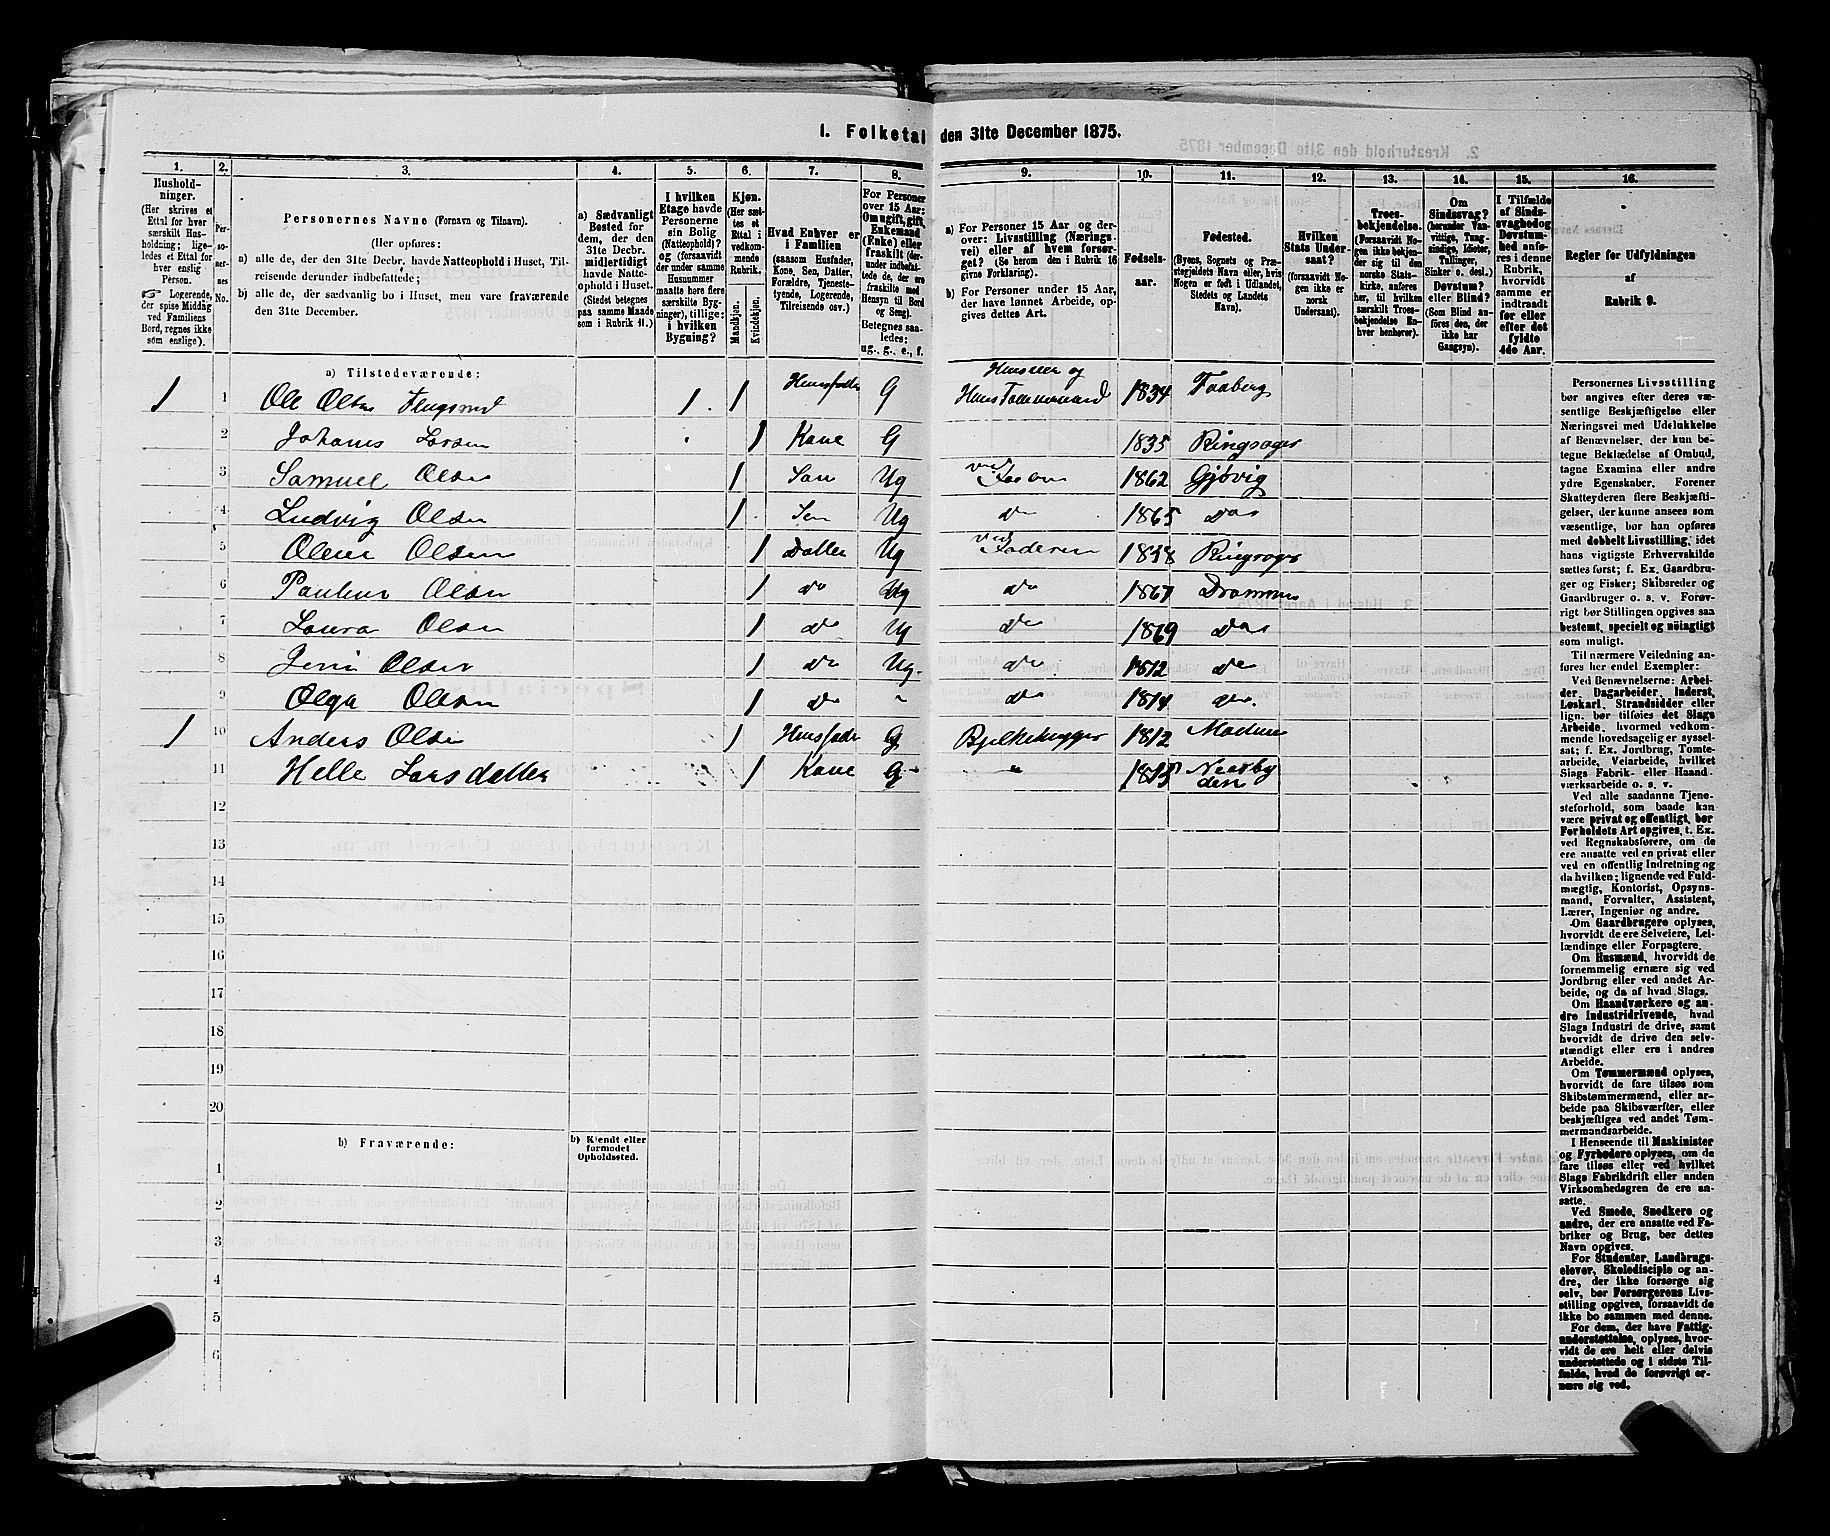 1. Folketal den 31te December 1875.
1. 2. 3. 4. 5. 6. 7. 8. 9. 10. 11. 12. 13. 14. 15. 16.
Hushold-
ninger.
(Her skrives et
Ettal for hver
særskilt Hus-
holdning; lige-
ledes et Ettal
for hver
enslig
Person.
Logerende,
der spise Middag
ved Familiens
Bord, regnes ikke
som enslige).
Per-
so-
ner-
nes
No.
Personernes Navne (Fornavn og Tilnavn).
(Her opføres:
a) alle de, der den 31te Decbr. havde Natteophold i Huset, Til-
reisende derunder indbefattede;
b) alle de, der sædvanlig bo i Huset, men vare fraværende
den 31te December.
a) Sædvanligt
Bosted for
dem, der den
31te Decbr.
midlertidigt
havde Natte-
ophold i Huset.
(Stedet betegnes
paa samme Maade
som i Rubrik 11.)
I hvilken
Etage havde
Personerne
sin Bolig
(Natteophold)?
og (forsaavidt
der under samme
Husnummer
maatte høre flere
særskilte Byg-
ninger), tillige:
i hvilken
Bygning?
Kjøn.
(Her sæt-
tes et
Ettal i
vedkom-
mende
Rubrik.
Mandkjøn.
Kvindekjøn.
Hvad Enhver er
i Familien
(saasom Husfader,
Kone, Søn, Datter,
Forældre, Tjeneste-
tyende, Logerende,
Tilreisende osv.)
For Personer
over 15 Aar:
Om ugift, gift,
Enkemand
(Enke) eller
fraskilt (der-
under indbefat-
tede de, der ere
fraskilte med
Hensyn til Bord
og Seng).
Betegnes saa-
ledes:
ug., g., e., f.
a) For Personer 15 Aar og der-
over: Livsstilling (Nærings-
vei) eller af hvem forsør-
get? (Se herom den i Rubrik 16
givne Forklaring).
b) For Personer under 15 Aar,
der have lønnet Arbeide, op-
gives dettes Art.
Fødsels-
aar.
Fødested.
(Byens, Sognets og Præ-
stegjeldets Navn eller, hvis
Nogen er født i Udlandet,
Stedets og Landets
Navn).
Hvilken
Stats Under-
saat?
(forsaavidt No-
gen ikke er
norsk
Undersaat).
Troes-
bekjendelse.
(Forsaavidt No-
gen ikke bekjen-
der sig til den
norske Stats-
kirke, anføres
her, til hvilken
særskilt Troes-
bekjendelse En-
hver henhører).
Om
Sindssvag?
(herunder Van-
vittige, Tung-
sindige, Idioter,
Tullinger,
Sinker o. desl.)
Døvstum?
eller Blind?
(Som Blind an-
føres den, der
ikke har
Gangsyn).
I Tilfælde
af Sinds-
svaghed og
Døvstum-
hed anfø-
res i denne
Rubrik,
hvorvidt
samme er
indtraadt
før eller
efter det
fyldte
4de Aar.
Regler for Udfyldningen
af
Rubrik 9.
a) Tilstedeværende:
1 1 Ole Olsen 1. 1 Huusfader G Huuseier og Huus Tømmermand 1834 Faaberg
2 Johanne Larsen 1 Kone G 1835 Ringsager
3 Samuel Olsen 1 Søn Ug 1862 Gjøvig
4 Ludvig Olsen 1 Søn Ug do 1865 Do
5 Olsen 1 Datter Ug ved Faderen Ringsager
6 Pauline Olsen 1 do Ug do 1867 Drammen
7 Laura Olsen 1 do Ug do 1869 Do
8 Olsen 1 do Ug. do 1872 do
9 Olga Olsen 1 do " do 1874 do.
1 10 Anders Olsen 1 Huusfader G Bjelkehugger 1812 Modum
11 Helle Larsdatter 1 Kone G - " 1815
12
13
14
15
16
17
18
19
20
b) Fraværende:
b) Kjendt eller
formodet
Opholdssted.
1
2
3
4
5
6
Personernes Livsstilling
bør angives efter deres væ-
sentlige Beskjæftigelse eller
Næringsvei med Udelukkelse
af Benævnelser, der kun be-
tegne Beklædelse af Ombud,
tagne Examina eller andre
ydre Egenskaber. Forener
Skatteyderen flere Beskjæfti-
gelser, der kunne ansees som
væsentlige, bør han opføres
med dobbelt Livsstilling, idet
hans vigtigste Erhvervskilde
sættes først; f. Ex. Gaardbru-
ger og Fisker; Skibsreder og
Gaardbruger o. s. v. Forøv-
rigt bør Stillingen opgives saa
bestemt, specielt og nøiagtigt
som muligt.
Til nærmere Veiledning an-
føres her endel Exempler:
Ved Benævnelserne: Arbei-
der, Dagarbeider, Inderst,
Løskarl, Strandsidder eller
lign. bør tilføies det Slags
Arbeide, hvormed vedkom-
mende hovedsagelig er syssel-
sat; f. Ex. Jordbrug, Tomte-
arbeide, Veiarbeide, hvilket
Slags Fabrik- eller Haand-
værksarbeide o. s. v.
Ved alle saadanne Tjene-
steforhold, som baade kan
være privat og offentligt, bør
Forholdets Art opgives, t. Ex.
ved Regnskabsførere, om de
ere ansatte ved en privat eller
ved en offentlig Indretning og
da hvilken; lignende ved Fuld-
mægtig, Kontorist, Opsyns-
mand, Forvalter, Assistent,
Lærer, Ingeniør og andre.
Om Gaardbrugere oplyses,
hvorvidt de ere Selveiere, Lei-
lændinge eller Forpagtere.
Om Husmænd, hvorvidt de
fornemmelig ernære sig ved
Jordbrug eller ved andet Ar-
beide, og da af hvad Slags.
Om Haandværkere og an-
dre Industridrivende, hvad
Slags Industri de drive, samt
hvorvidt de drive den selv-
stændigt eller ere i andres
Arbeide.
Om Tømmermænd oplyses,
hvorvidt de fare tilsøs som
Skibstømmermænd, eller ar-
beide paa Skibsværfter, eller
beskjæftiges ved andet Tøm-
mermandsarbeide.
I Henseende til Maskinister
og Fyrbødere oplyses, om de
fare tilsøs eller ved hvilket
Slags Fabrikdrift eller anden
Virksomhedsgren de ere an-
satte.
Ved Smede, Snedkere og
andre, der ere ansatte ved Fa-
briker og Brug, bør dettes
Navn opgives.
For Studenter, Landbrugs-
elever, Skoledisciple og an-
dre, der ikke forsørge sig
selv, bør Forsørgerens Livs-
stilling opgives, forsaavidt de
ikke bo sammen med denne.
For dem, der have Fattig-
understøttelse, oplyses, hvor-
vidt de ere helt eller delvis
understøttede og i sidste Til-
fælde, hvad de forøvrigt er-
nære sig ved.